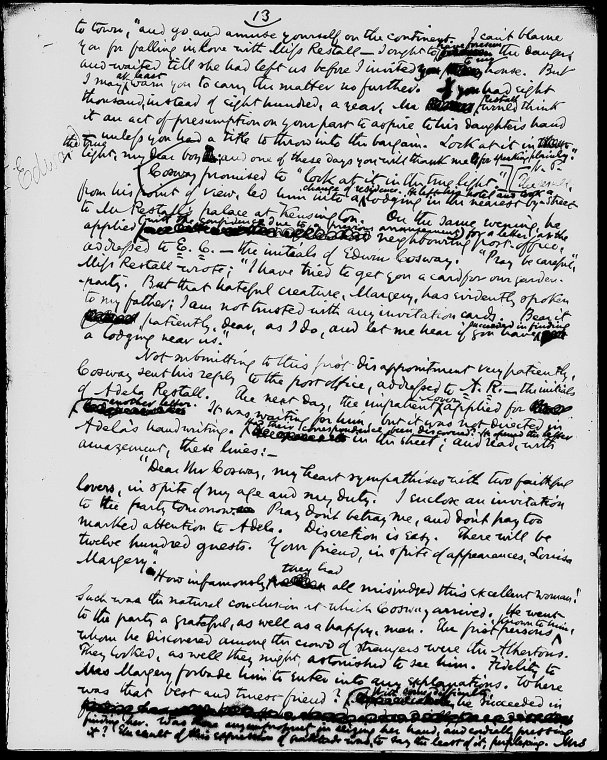 13
to town, "and go and amuse yourself on the continent. I can't blame
you for falling in love with Miss Restall — I ought to have foreseen the danger
and waited till she had left us before I invited you to my house. But
I may at least warn you to carry the matter no further. If you had eight
thousand, instead of eight hundred, a year, Mr Restall would think
it an act of presumption on your part to aspire to his daughter's hand
— unless you had a title to throw into the bargain. Look at it in
the true light, my dear boy; and one of these days you will thank me for speaking plainly."
Edwin
Cosway promised to "look at it in the true light." N.P. The result,
from his point of view, led him into a change of residence. He left his hotel and took a lodging in the nearest bye-street
to Mr Restall's palace at Kensington. On the same evening, he
applied (with the confidence due to a previous arrangement) for a letter at the neighbouring post-office,
addressed to E. C. — the initials of Edwin Cosway. "Pray be careful,"
Miss Restall wrote; "I have tried to get you a card for our garden-
party. But that hateful creature, Margery, has evidently spoken
to my father; I am not trusted with any invitation cards. Bear it
patiently, dear, as I do, and let me hear if you have succeeded in finding
a lodging near us."
Not submitting to this first disappointment very patiently,
Cosway sent his reply to the post office, addressed to A. R. — the initials
of Adela Restall. The next day, the impatient lover applied for
another letter. It was waiting for him, but it was not directed in
Adela's handwriting. Had their correspondence been discovered? He opened the letter in the street; and read, with
amazement, these lines: —
"Dear Mr Cosway, my heart sympathises with two faithful
lovers, in spite of my age and my duty. I enclose an invitation
to the party tomorrow. Pray don't betray me, and don't pay too
marked attention to Adela. Discretion is easy. There will be
twelve hundred guests. Your friend, in spite of appearances, Louisa
Margery."
How infamously they had all misjudged this excellent woman!
Such was the natural conclusion at which Cosway arrived. He went
to the party a grateful, as well as a happy, man. The first persons known to him,
whom he discovered among the crowd of strangers were the Athertons.
They looked, as well they might, astonished to see him. Fidelity to
Mrs Margery forbade him to enter into any explanations. Where
was that best and truest friend? With some difficulty he succeeded in
finding her. Was there any impropriety in seizing her hand, and cordially pressing
it? The result of this expression of gratitude was, to say the least of it, perplexing. Mrs